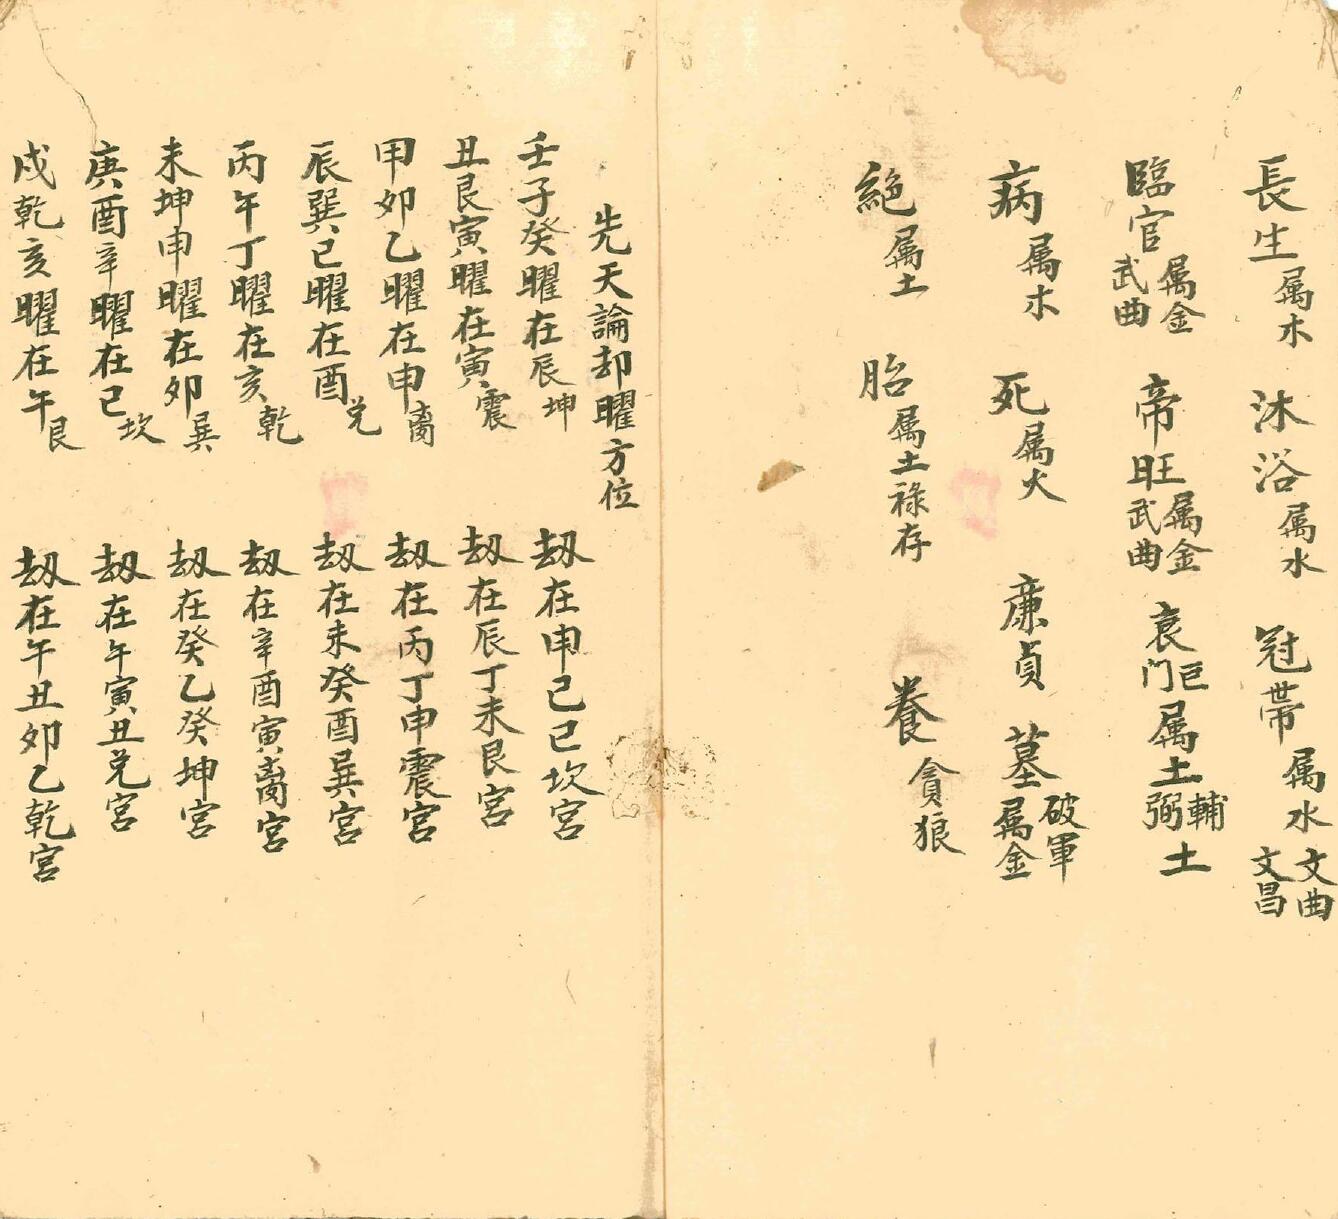 長生属木 沐浴属水 冠帯属水文曲文昌
臨官属金武曲 帝旺属金武曲 衰巨門属土輔弼土
病属木 死属火 廉貞 墓破軍属金
絕属土 胎属土祿存 養貪狼
先天論却曜方位
壬子癸曜在辰坤 刼在申己巳坎宮
丑艮寅曜在寅震 刼在辰丁未艮宮
甲卯乙曜在申离 刼在丙丁申震宮
辰巽巳曜在酉兑 刼在未癸酉巽宮
丙午丁曜在亥乾 刼在辛酉寅离宮
未坤申曜在卯巽 刼在癸乙癸坤宮
庚酉辛曜在巳坎 刼在午寅丑兑宮
戍乾亥曜在午艮 刼在午丑卯乙乾宮